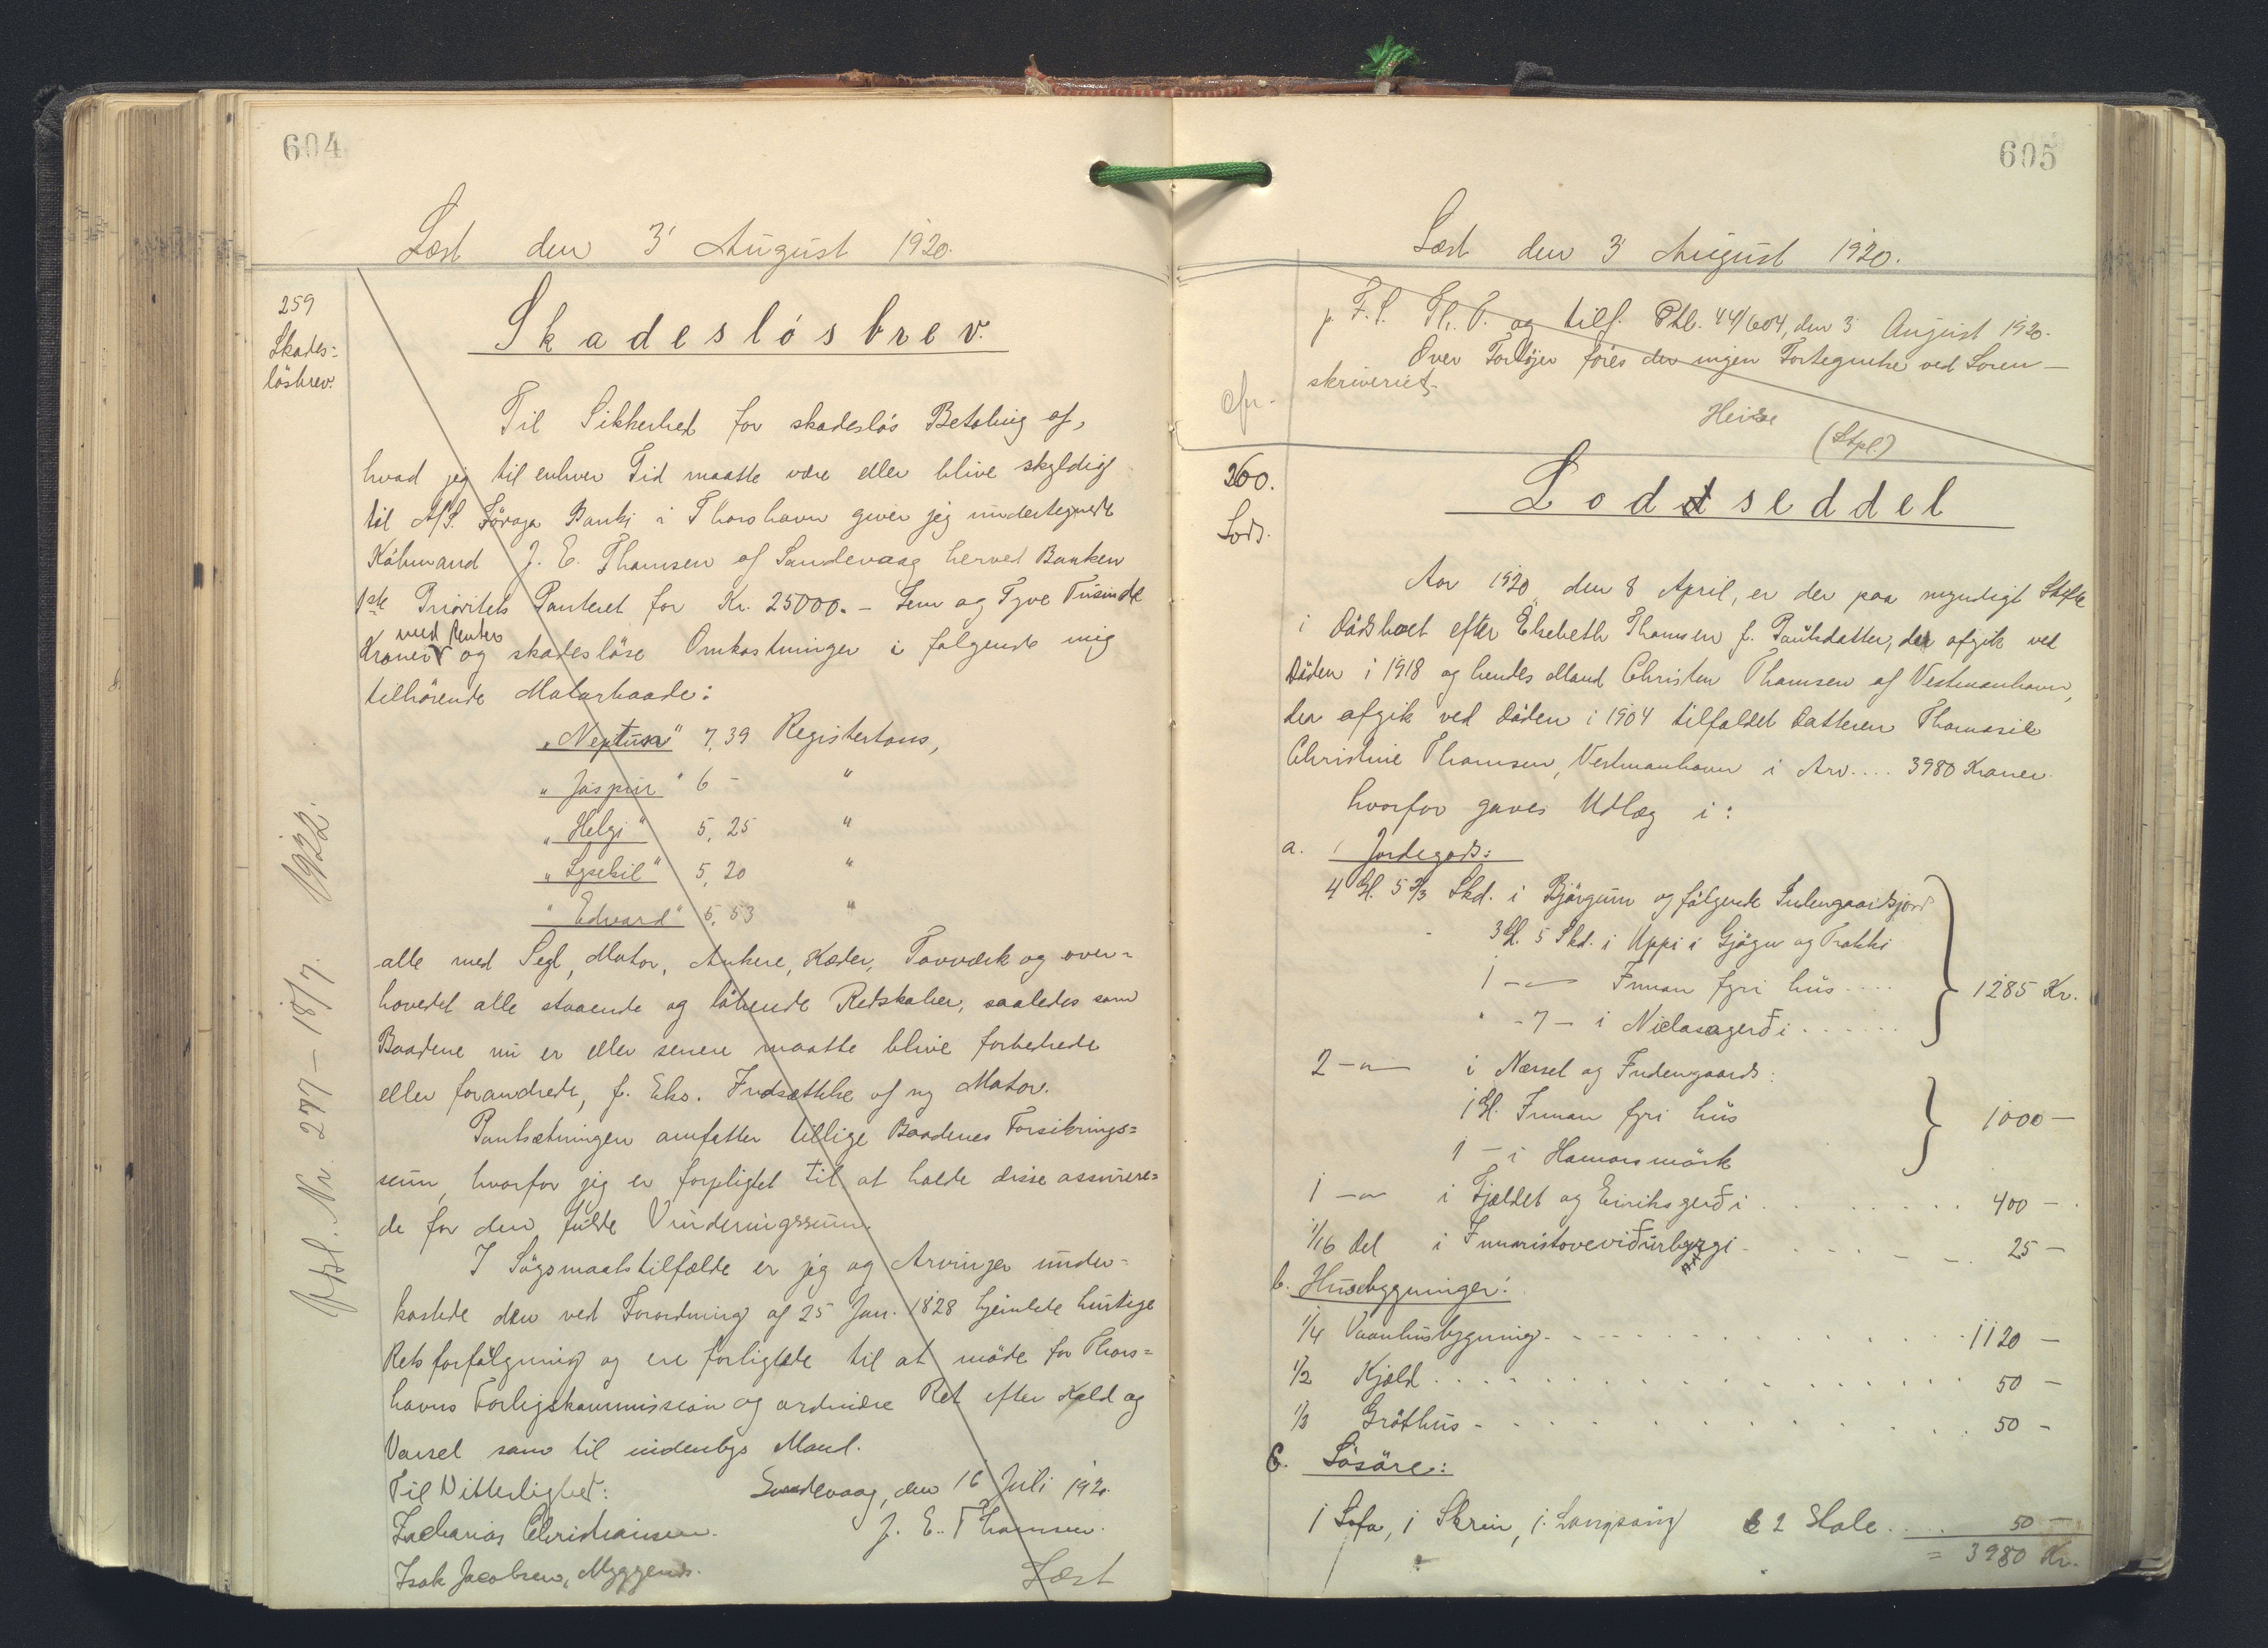 604
Læst den 3' August 1920.
259
Skades=
løsbrev.
Skadesløsbrev.
Til Sikkerhed for skadesløs Betaling af,
hvad jeg til enhver Tid maatte være eller blive skyldig
til A/S. Föroya Banki i Thorshavn giver jeg undertegnede
Købmand J. E. Thomsen af Sandevaag herved Banken
1ste Prioritets Panteret for Kr. 25000.- Fem og Tyve Tusinde
med Renter
Kroner og skadesløse Omkostninger i følgende mig
tilhørende Motorbaade:
„Neptun" 7,39 Registertons,
„Jaspur" 6 - "
„Helgi" 5,25 "
„Lysebil" 5,20 "
"Edvard" 5,53 "
alle med Segl, Motor, Ankere, Kæder, Tovværk og over=
hovedet alle staaende og løbende Redskaber, saaledes som
Baadene nu er eller senere maatte blive forbedrede
eller forandrede, f. Eks. Indsættelse af ny Motor.
Pantsætningen omfatter tillige Baadenes Forsikrings=
sum, hvorfor jeg er forpligtet til at holde disse assurere=
de for den fulde Vurderingssum.
I Søgsmaalstilfælde er jeg og Arvinger under-
kastede den ved Forordning af 25 Jan. 1828 hjemlede hurtige
Retsforfølgning og ere forligtede til at møde for Thors=
havns Forligskommission og ordinære Ret efter Kald og
Varsel som til indenbys Mand.
Til Vitterlighed:
Sandevaag, den 16 Juli 1920.
Zacharias Christiansen.
J. E. Thomsen.
Isak Jacobsen, Myggenæs.
Læst
Afl. Nr. 277 - 18/7. 1922.
605
Læst den 3' August 1920.
p. F. S. Th. V. og tilf. Ptb. 44/604, den 3' August 1920.
Over Fartøjer føres der ingen Fortegnelse ved Soren-
skriveriet.
Heise
(Stpl.)
260.
Lods.
Lodsseddel
Aar 1920, den 8 April, er der paa myndigt Skifte
i Dødsboet efter Elsebeth Thomsen f. Poulsdatter, der afgik ved
Døden i 1918 og hendes Mand Christen Thomsen af Vestmanhavn,
der afgik ved Døden i 1904 tilfaldet Datteren Thomasile
Christine Thomsen, Vestmanhavn i Arv.... 3980 Kroner
hvorfor gaves Udlæg i:
a. Jordegods:
4 Gl. 5 2/3 Skd. i Bjørgum og følgende Indengaardsjord
3 Gl. 5 Skd. i Uppi i Gjógv og Trøkki
1 - " - Innan fyri hús....
" - 7 - i Niclasagerði......
1285 Kr.
2 - " - i Nærsel og Indengaards:
1 Gl. Innan fyri hús
1 - i Hamarsmörk
1000 -
1 - " - i Fjældet og Eiriksgerði . . . . . . 400 -
1/16 Del i Innaristoveviðurbyrgi - . . . - - 25 -
b. Husebygninger:
1/4 Vaanhusbygning - . . . . . . 1120 -
1/2 Kjøld . . . . . . . . . 50 -
1/3 Gróthús - . . . . . . . 50 -
C. Løsøre:
1 Sofa, 1 Skrin, 1 Langsäng & 2 Stole..... 50 -
= 3980 Kr.